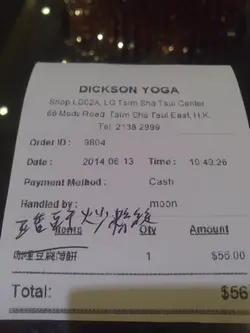 DICKSON YOGA
Shop LG02A, LG Tsim Sha Tsui Center
66 Mody Road, Tsim Sha Tsui East, H.K.
Tel: 2138 2999
Order ID : 9804
Date : 2014-06-13 Time : 19:49:26
Payment Method : Cash
Handled by : moon
炒粉絲
Items Qty Amount
咖哩豆腐薄餅 1 $56.00
Total: $56